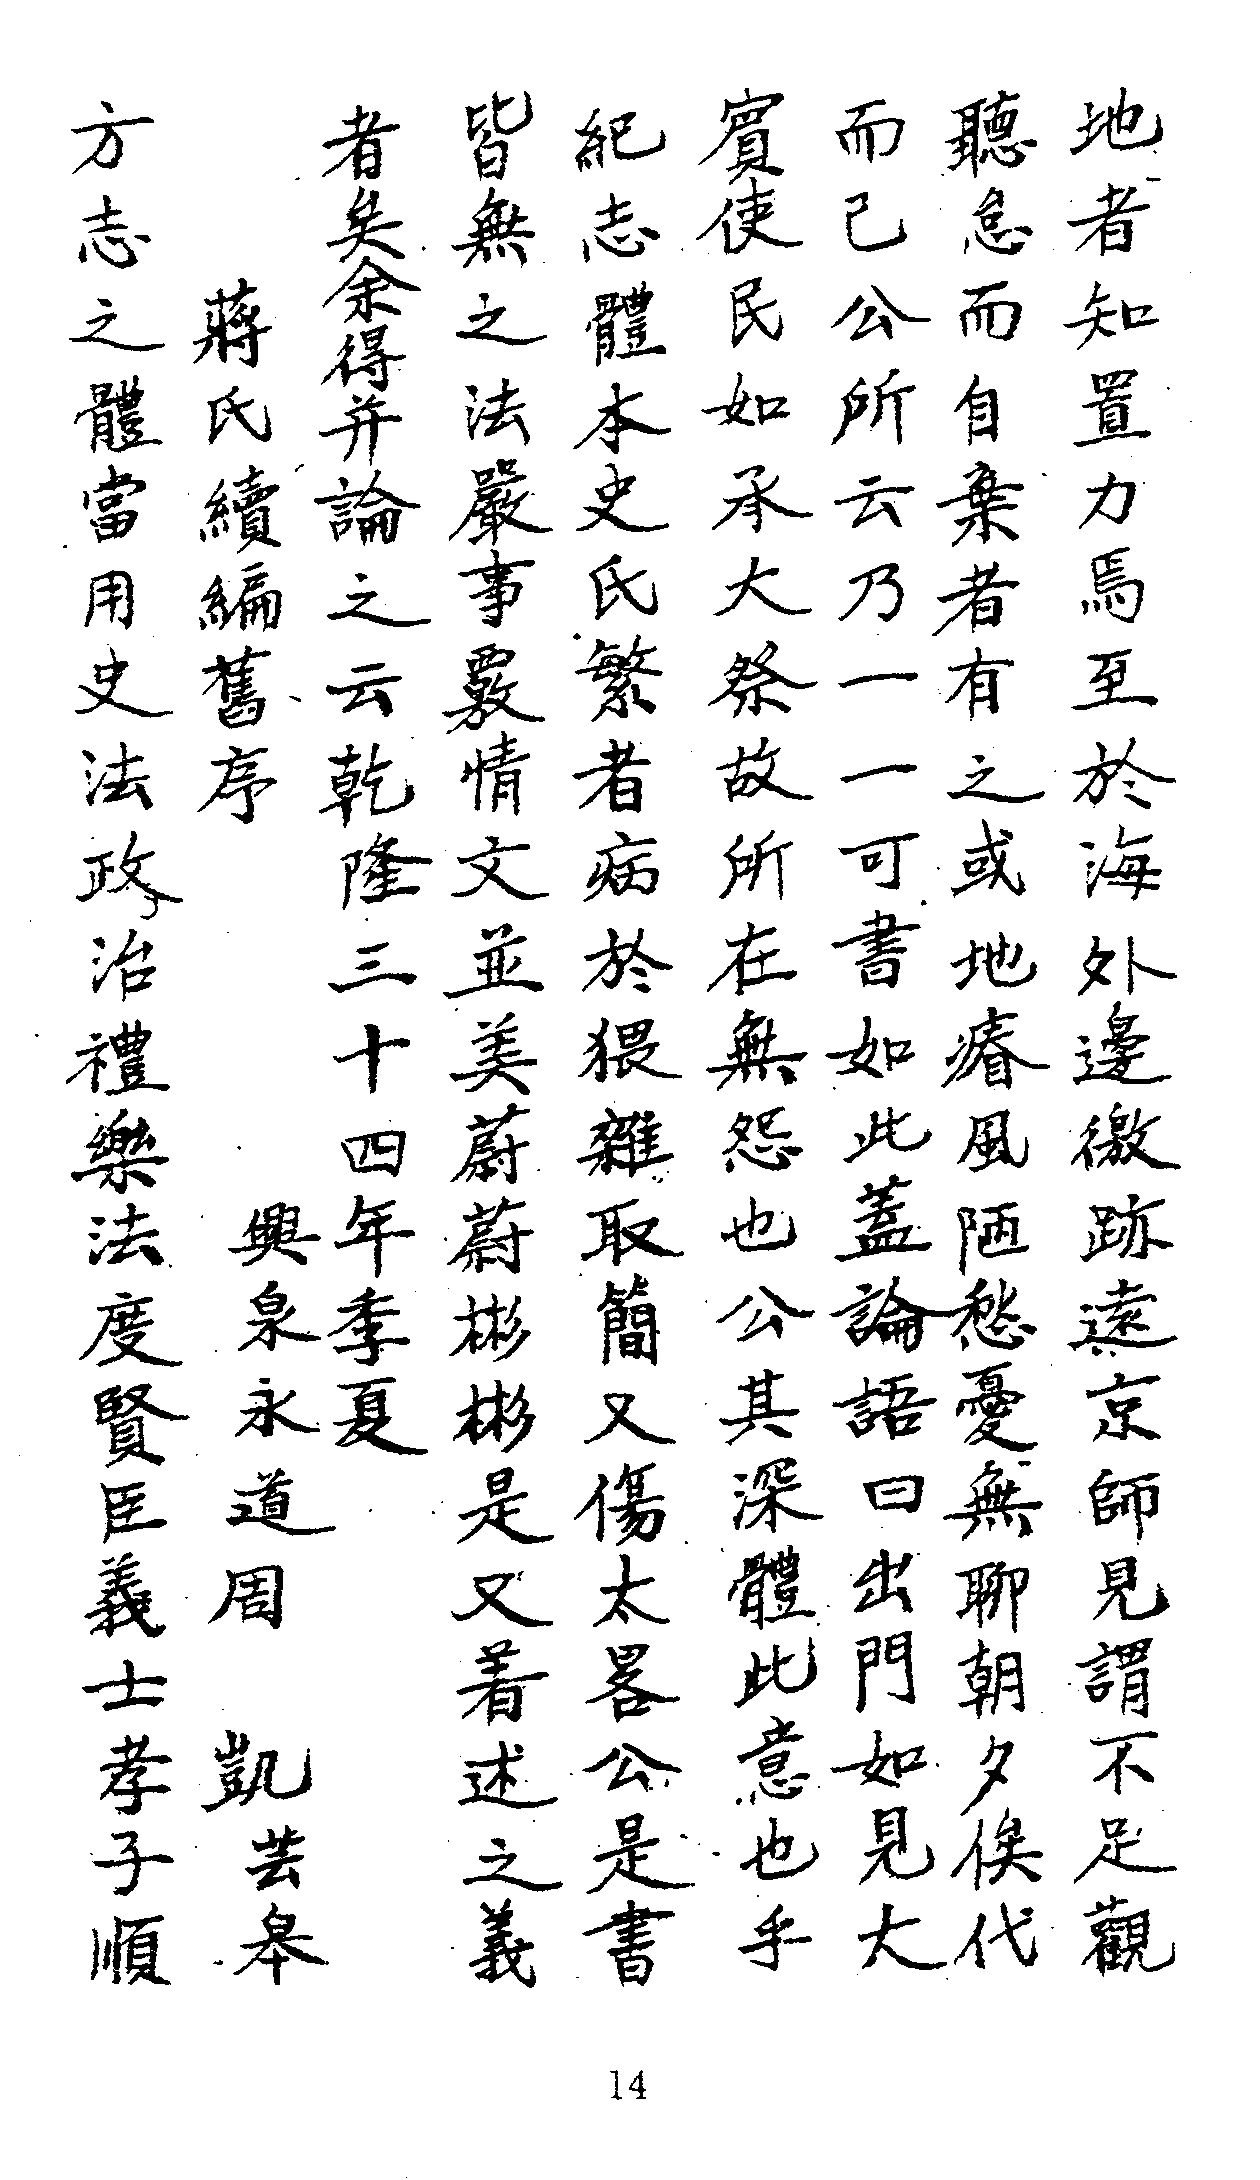 地者知置力焉至於海外邊徼跡遠京師見謂不足觀
聽怠而自棄者有之或地瘠風陋愁憂無聊朝夕俟代
而已公所云乃一一可書如此蓋論語曰出門如見大
賓使民如承大祭故所在無怨也公其深體此意也乎
紀志體本史氏繁者病於猥雜取簡又傷太畧公是書
皆無之法嚴事覈情文並美蔚蔚彬彬是又着述之義
者矣余得并論之云乾隆三十四年季夏
興泉永道周凱芸皋
蔣氏續編舊序
方志之體當用史法政治禮樂法度賢臣義士孝子順
14